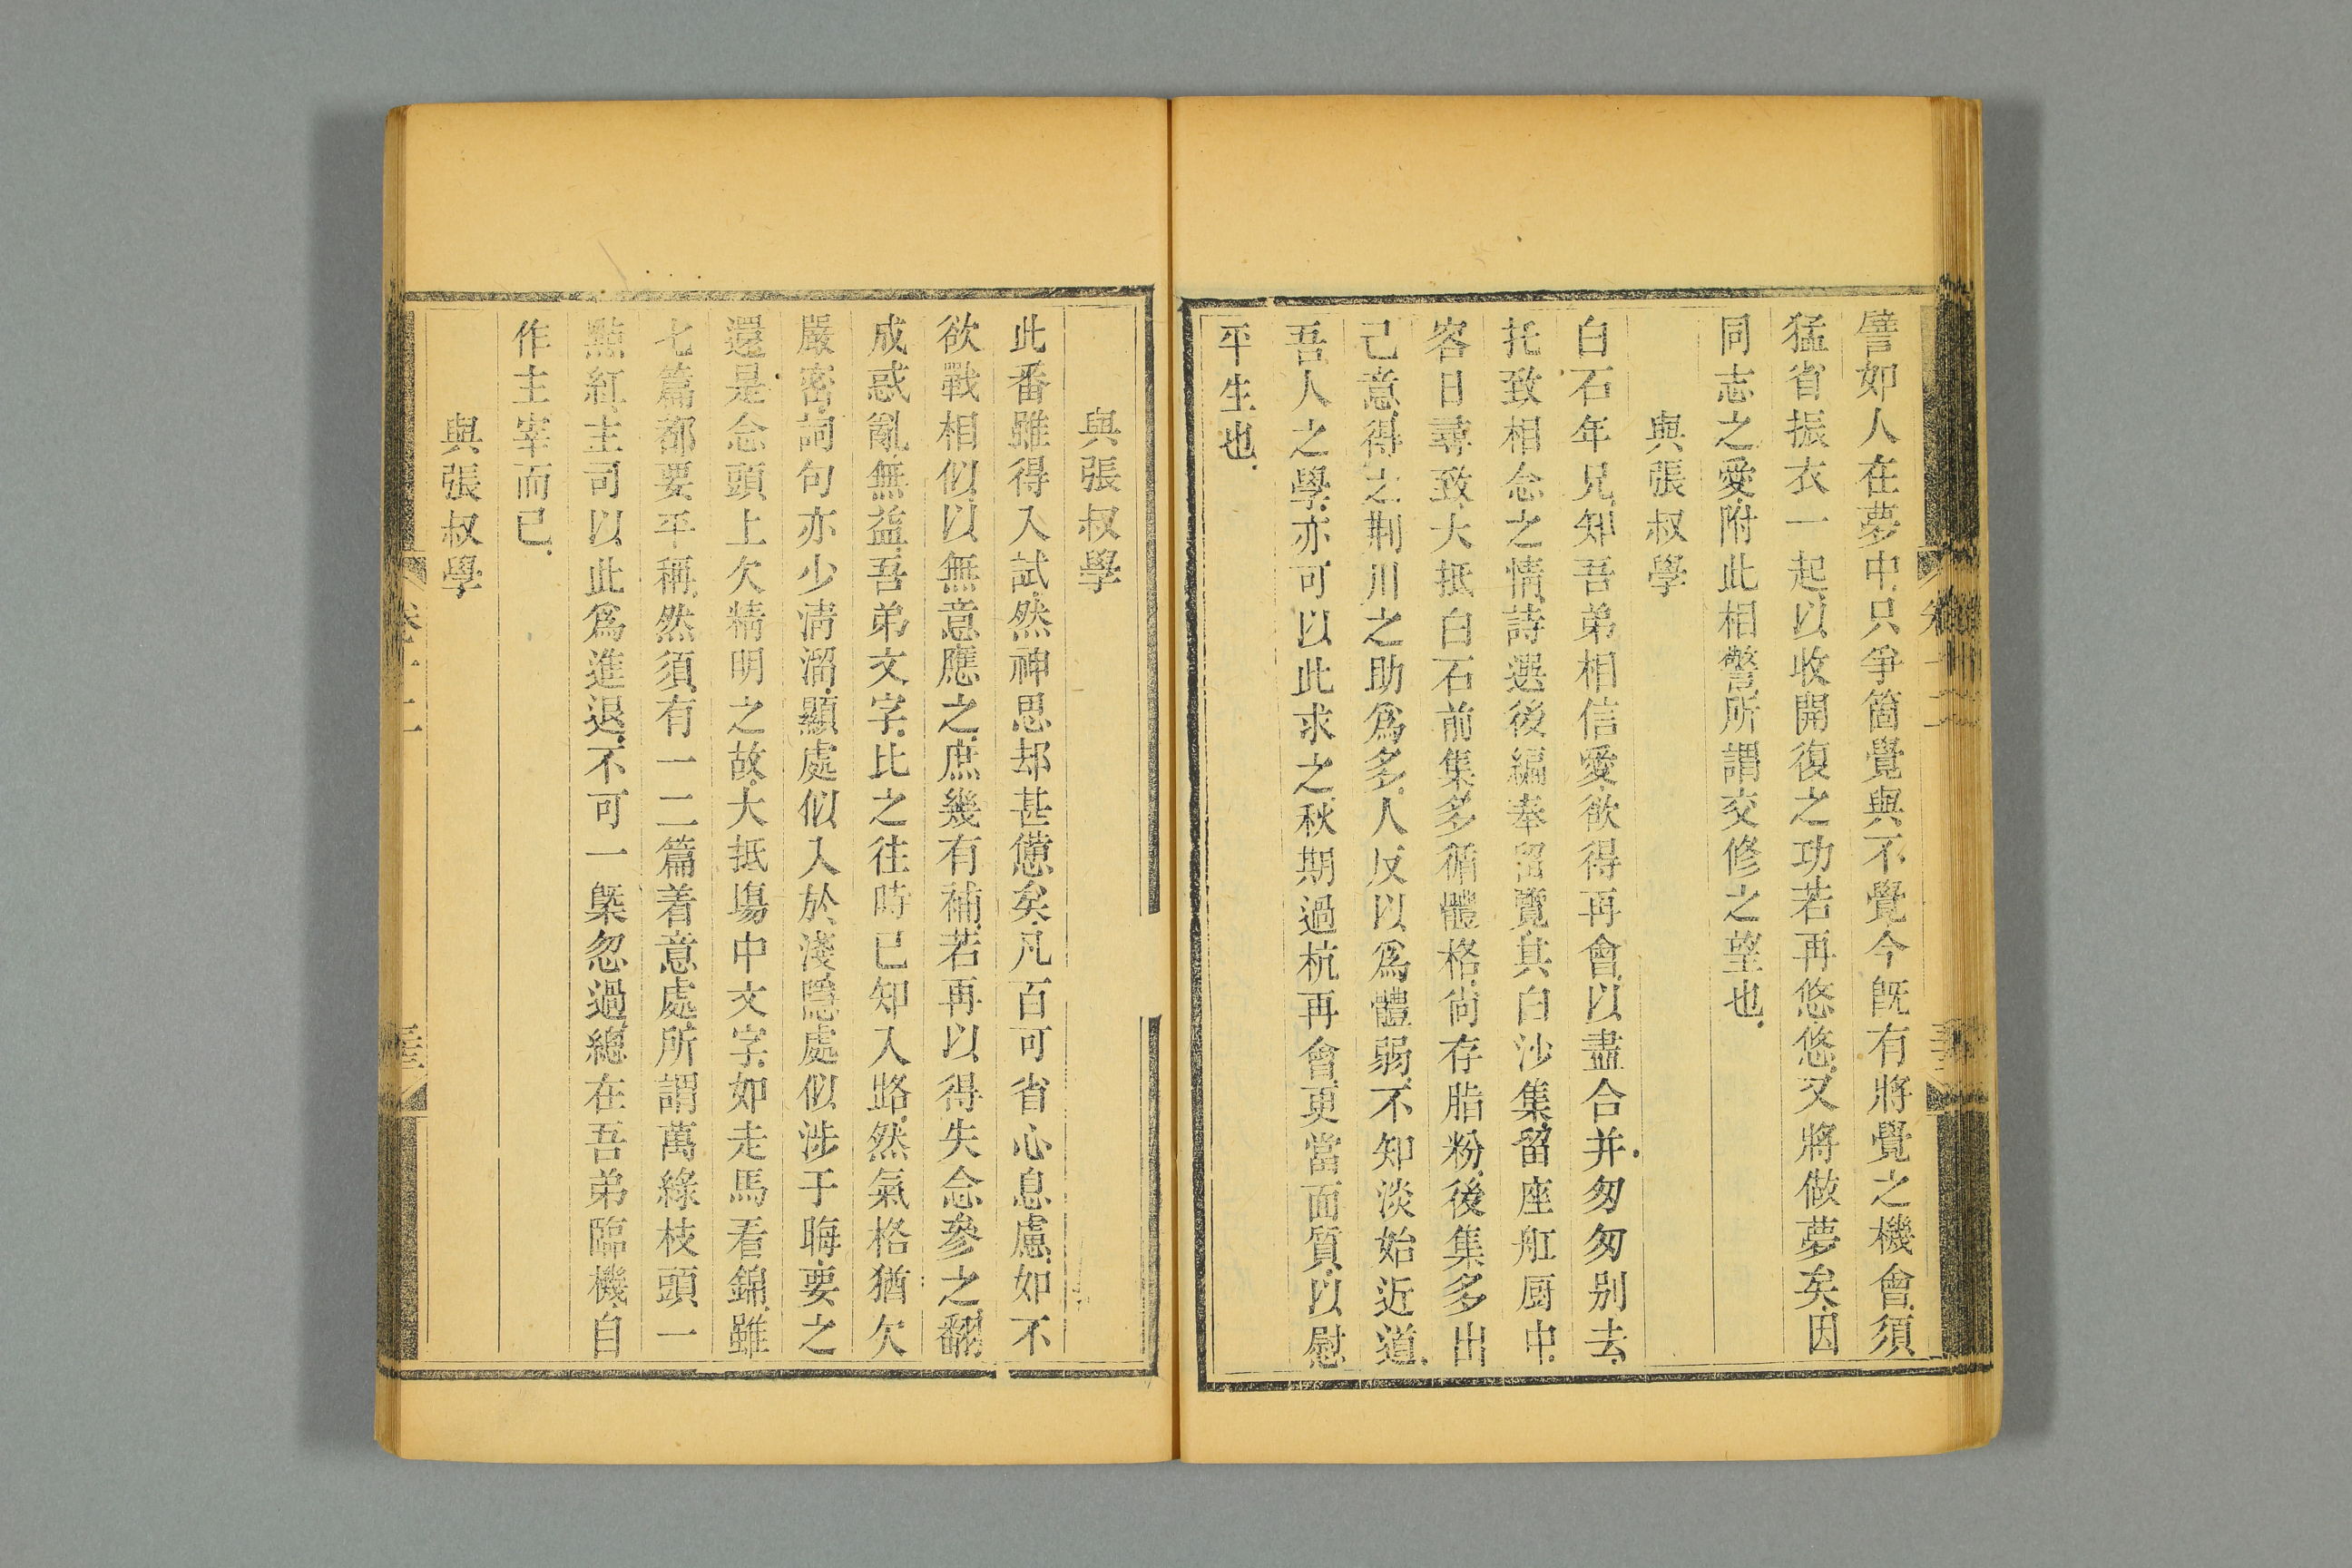 譬如人在夢中只爭箇覺與不覺今旣有將覺之機會須
猛省振衣一起以收開復之功若再悠悠又將做夢矣因
同志之愛附此相警所謂交修之望也
與張叔學
白石年兄知吾弟相信愛欲得再會以盡合并匆匆别去
托致相念之情詩選後編奉留覽其白沙集留座舡厨中
客日尋致大抵白石前集多循體格尙存脂粉後集多出
己意得之荆川之助爲多人反以爲體弱不知淡始近道
吾人之學亦可以此求之秋期過杭再會更當面質以慰
平生也
與張叔學
此番雖得入試然神思却甚憊矣凡百可省心息慮如不
欲戰相似以無意應之庶幾有補若再以得失念參之翻
成惑亂無益吾弟文字比之往時已知入路然氣格猶欠
嚴密詞句亦少淸溜顯處似入於淺隱處似涉于晦要之
還是念頭上欠精明之故大抵塲中文字如走馬看錦雖
七篇都要平稱然須有一二篇着意處所謂萬綠枝頭一
點紅主司以此爲進退不可一槩忽過總在吾弟臨機自
作主宰而已
與張叔學
卷十二